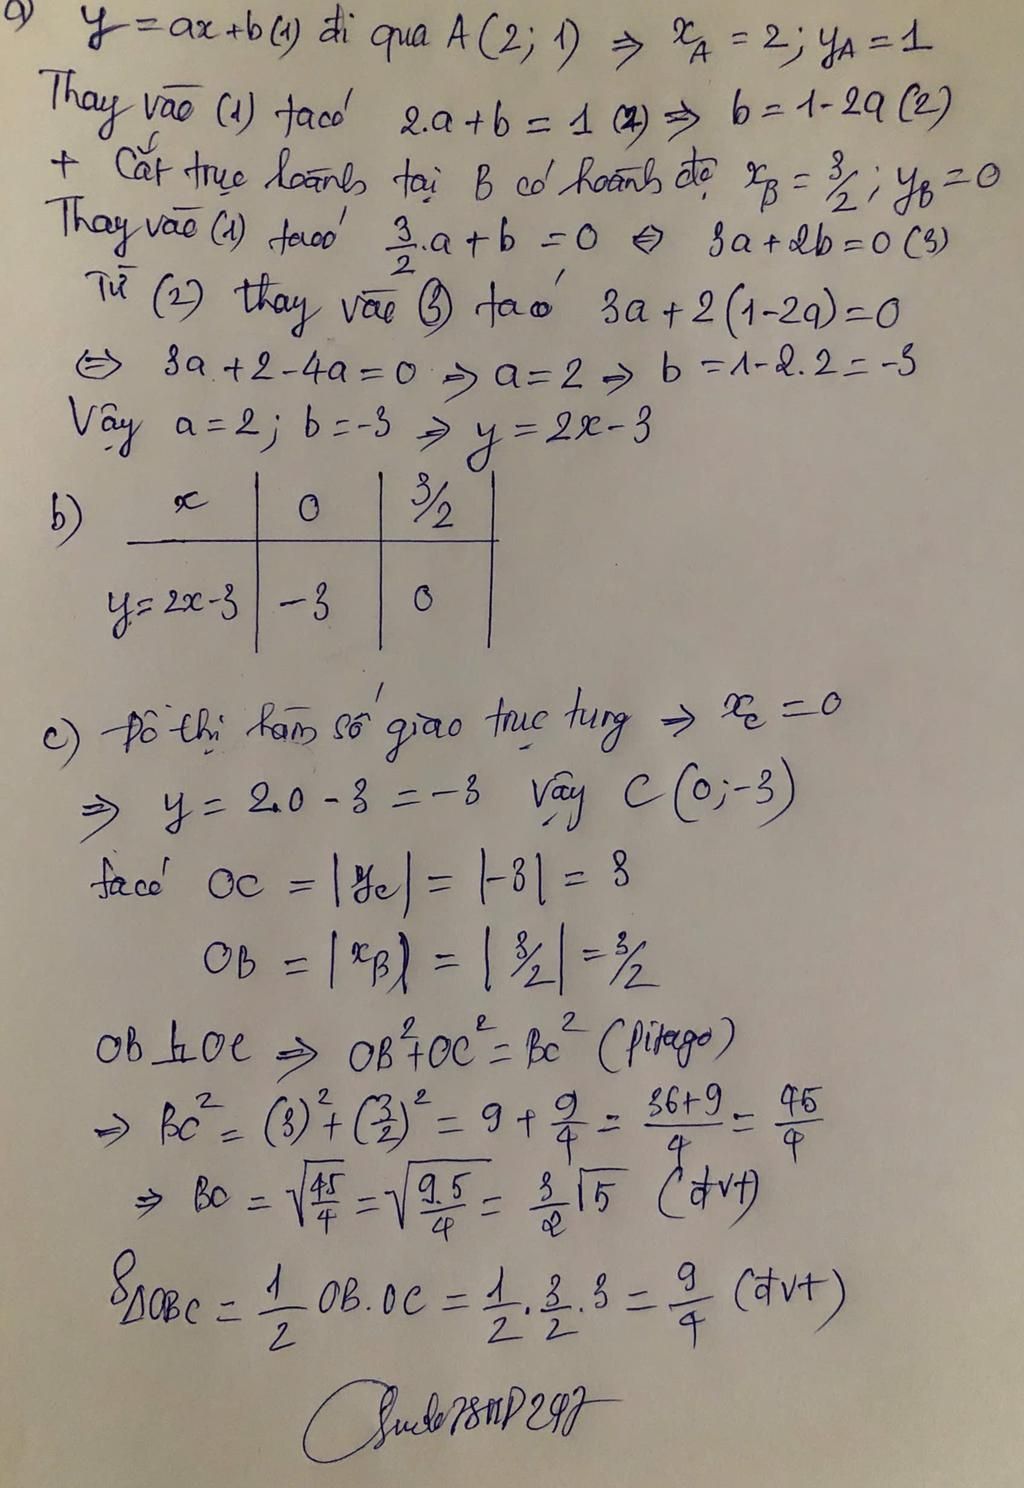 a) y = ax + b (1) đi qua A (2; 1) ⇒ x_A = 2; y_A = 1
Thay vào (1) ta có 2.a + b = 1 (2) ⇒ b = 1 - 2a (2)
+ Cắt trục hoành tại B có hoành độ x_B = 3/2; y_B = 0
Thay vào (1) ta có 3/2 . a + b = 0 ⇔ 3a + 2b = 0 (3)
Từ (2) thay vào (3) ta có 3a + 2(1 - 2a) = 0
⇔ 3a + 2 - 4a = 0 ⇒ a = 2 ⇒ b = 1 - 2.2 = -3
Vậy a = 2; b = -3 ⇒ y = 2x - 3
b) x | 0 | 3/2
y = 2x - 3 | -3 | 0
c) Đồ thị hàm số giao trục tung ⇒ x_C = 0
⇒ y = 2.0 - 3 = -3 Vậy C (0; -3)
ta có OC = |y_C| = |-3| = 3
OB = |x_B| = |3/2| = 3/2
OB ⊥ OC ⇒ OB² + OC² = BC² (Pitago)
⇒ BC² = (3)² + (3/2)² = 9 + 9/4 = (36+9)/4 = 45/4
⇒ BC = √(45/4) = √(9.5/4) = 3/2 √5 (đvt)
S_ΔOBC = 1/2 OB.OC = 1/2 . 3/2 . 3 = 9/4 (đvt)